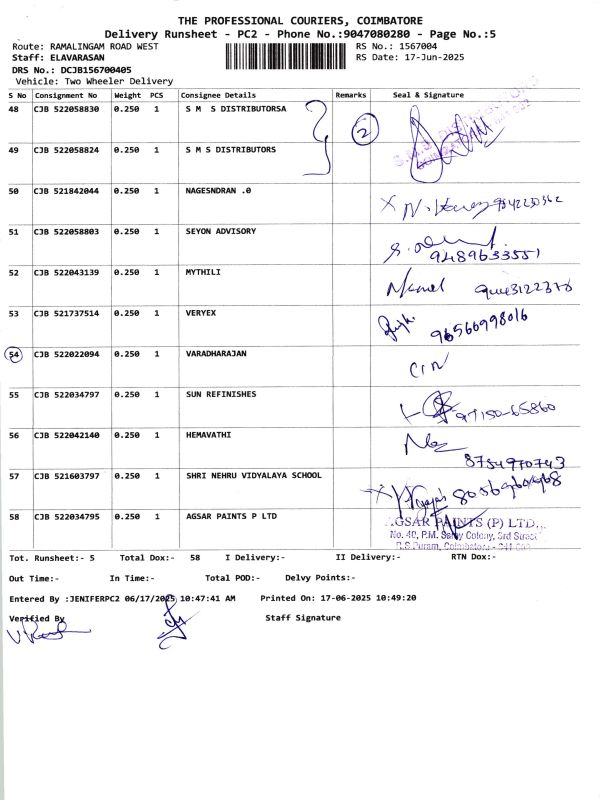 THE PROFESSIONAL COURIERS, COIMBATORE
Delivery Runsheet - PC2 - Phone No.:9047080280 - Page No.:5
Route: RAMALINGAM ROAD WEST
RS No.: 1567004
Staff: ELAVARASAN
RS Date: 17-Jun-2025
DRS No.: DCJB156700405
Vehicle: Two Wheeler Delivery
S No Consignment No Weight PCS Consignee Details Remarks Seal & Signature
48 CJB 522058830 0.250 1 S M S DISTRIBUTORSA
2
49 CJB 522058824 0.250 1 S M S DISTRIBUTORS
50 CJB 521842044 0.250 1 NAGESNDRAN .0
51 CJB 522058803 0.250 1 SEYON ADVISORY
9489633551
52 CJB 522043139 0.250 1 MYTHILI
53 CJB 521737514 0.250 1 VERYEX
96566998016
54 CJB 522022094 0.250 1 VARADHARAJAN
55 CJB 522034797 0.250 1 SUN REFINISHES
97150-65860
56 CJB 522042140 0.250 1 HEMAVATHI
8754970743
57 CJB 521603797 0.250 1 SHRI NEHRU VIDYALAYA SCHOOL
58 CJB 522034795 0.250 1 AGSAR PAINTS P LTD
AGSAR PAINTS (P) LTD.,
No. 40, P.M. Samy Colony, 3rd Street
R.S.Puram, Coimbatore - 641 002
Tot. Runsheet:- 5 Total Dox:- 58 I Delivery:- II Delivery:- RTN Dox:-
Out Time:- In Time:- Total POD:- Delvy Points:-
Entered By :JENIFERPC2 06/17/2025 10:47:41 AM Printed On: 17-06-2025 10:49:20
Verified By Staff Signature